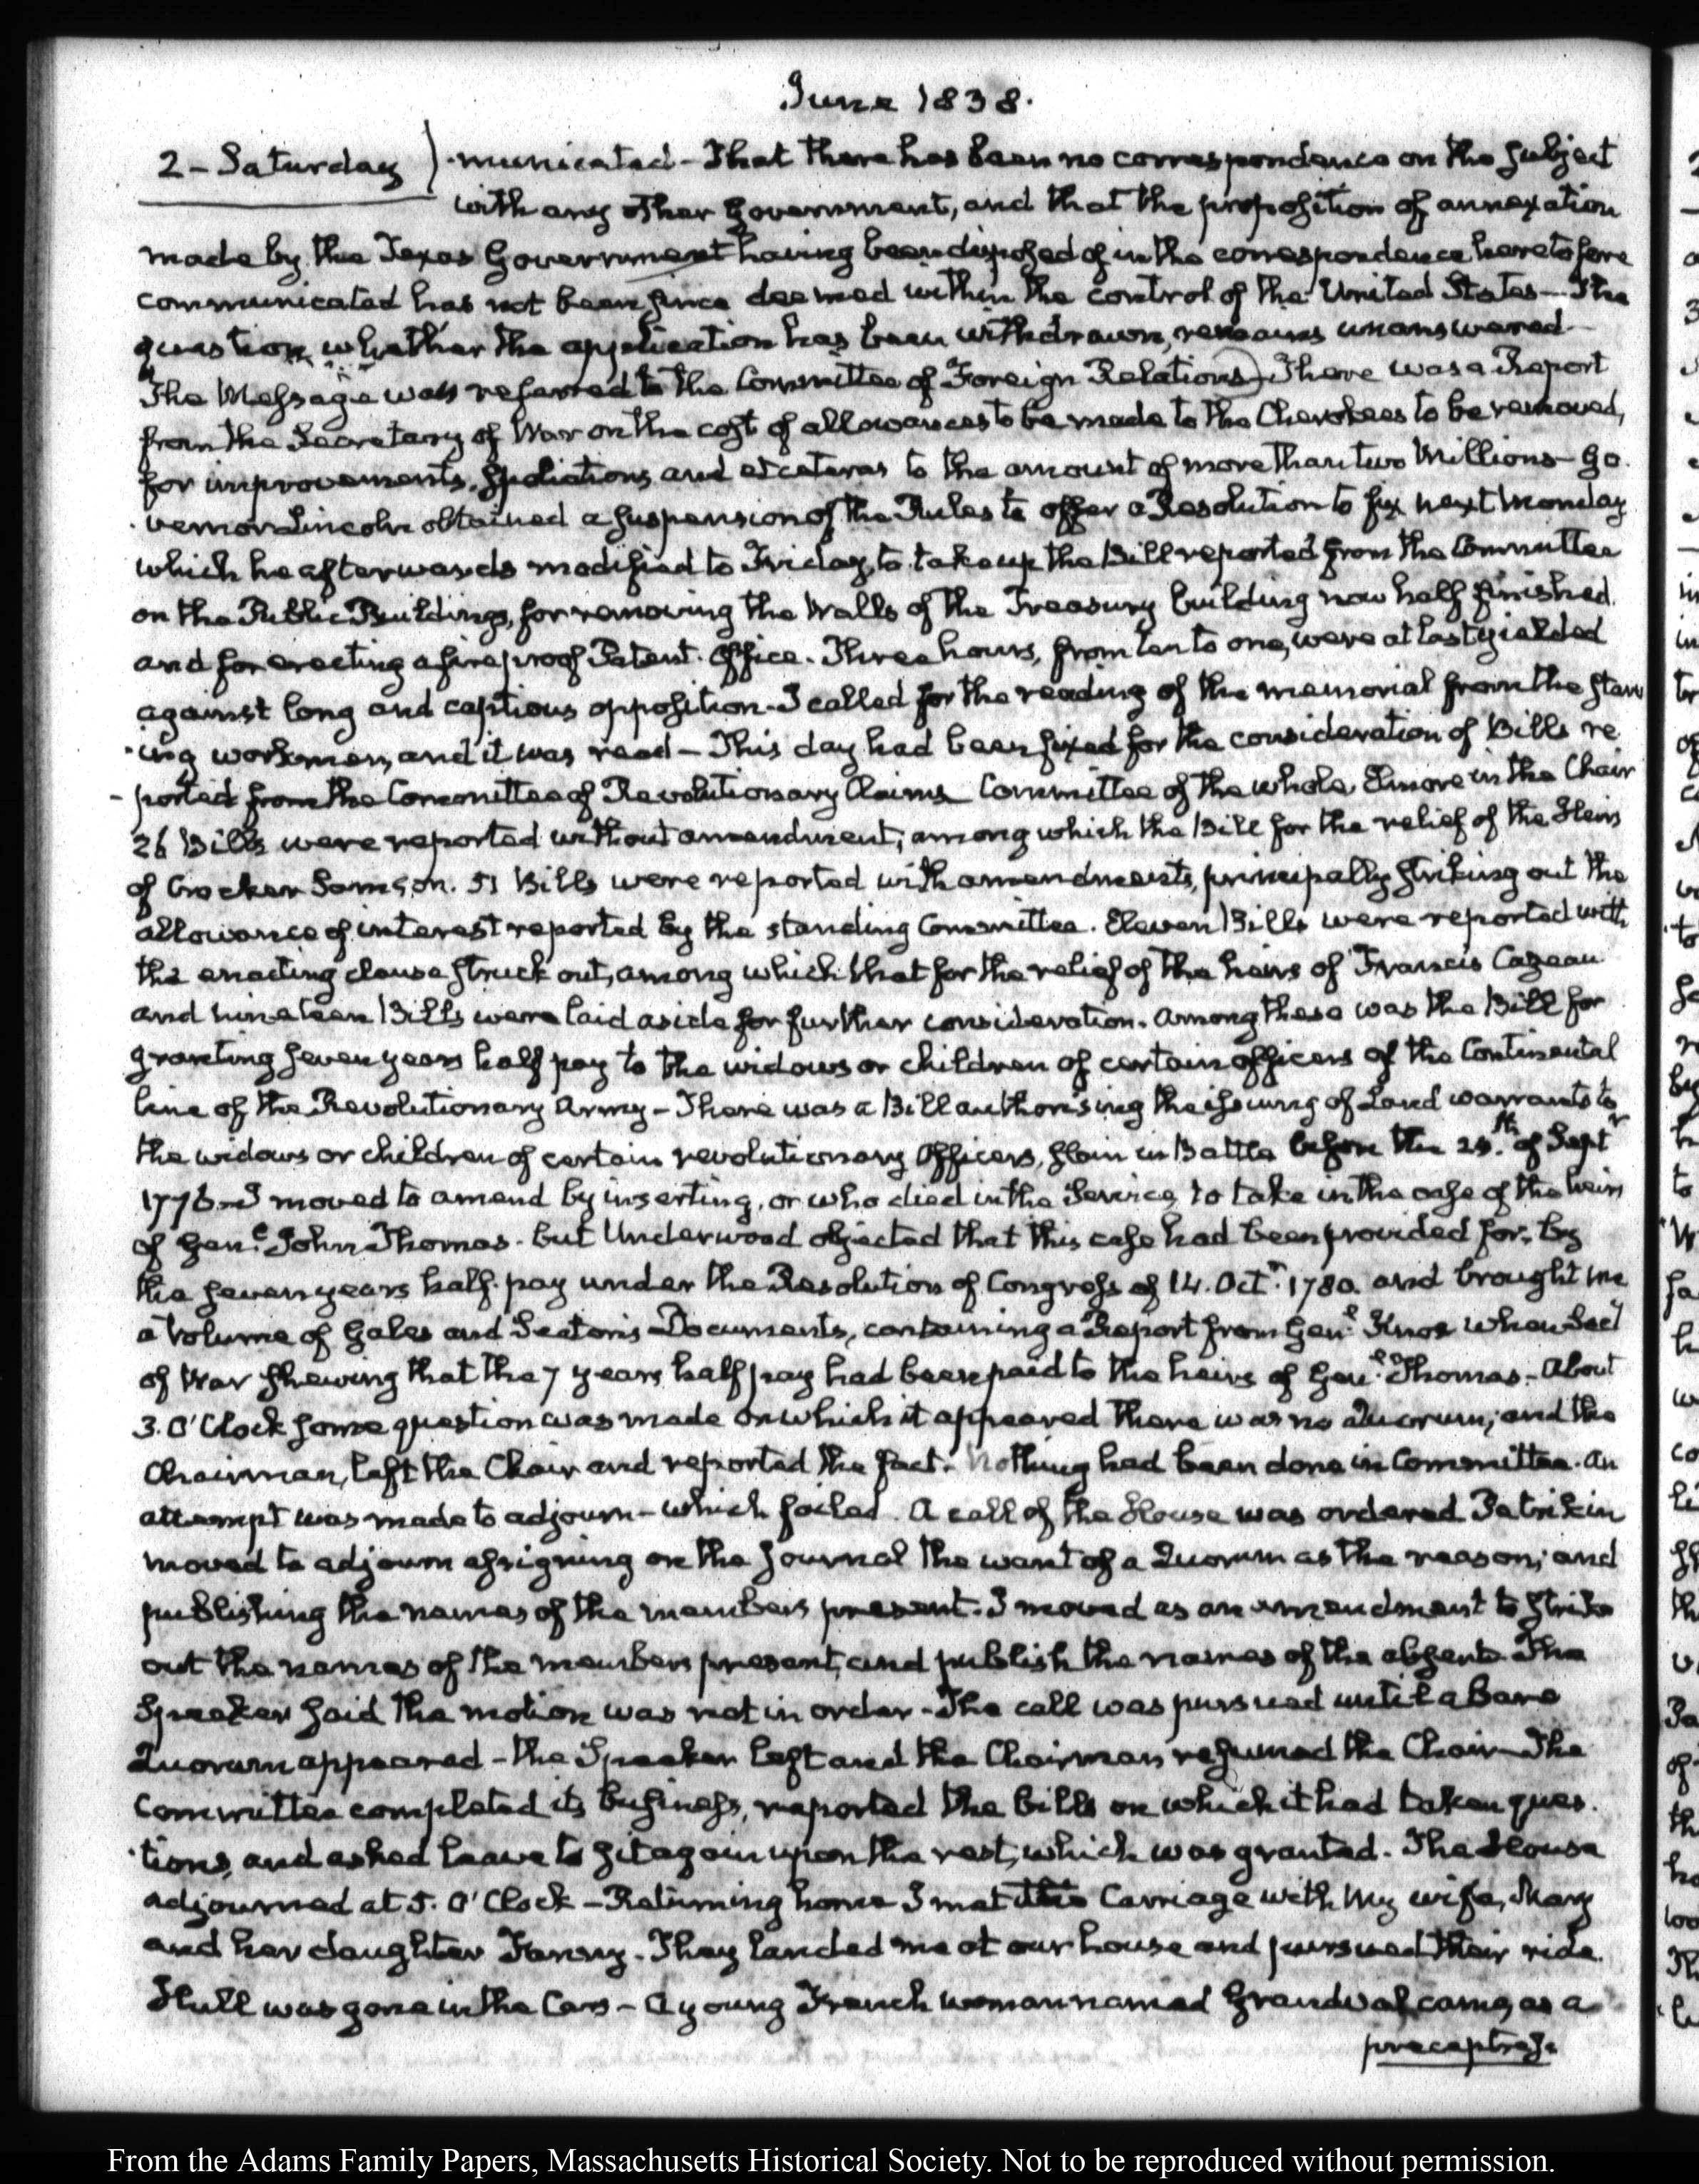 June 1838.
2 - Saturday ) -municated - That there has been no correspondence on the subject
with any other Government, and that the proposition of annexation
made by the Texas Government having been disposed of in the correspondence heretofore
communicated has not been since deemed within the control of the United States - The
question whether the application has been withdrawn, remains unanswered -
The Message was referred to the Committee of Foreign Relations) There was a Report
from the Secretary of War on the cost of allowances to be made to the Cherokees to be removed,
for improvements, spoliations, and etceteras to the amount of more than two Millions - Go-
-vernor Lincoln obtained a suspension of the Rules to offer a Resolution to fix next Monday
which he afterwards modified to Friday, to take up the Bill reported from the Committee
on the Public Buildings, for removing the Walls of the Treasury building now half finished.
and for erecting a fire proof Patent Office. Three hours, from ten to one, were at last yielded
against long and captious opposition - I called for the reading of the memorial from the starv
-ing workmen, and it was read - This day had been fixed for the consideration of Bills re
-ported from the Committee of Revolutionary Claims - Committee of the whole, Elmore in the Chair
26 Bills were reported without amendment, among which the Bill for the relief of the Heirs
of Crocker Samson. 51 Bills were reported with amendments, principally striking out the
allowance of interest reported by the standing Committee. Eleven Bills were reported with
the enacting clause struck out, among which that for the relief of the heirs of Francis Cazeau
and nineteen Bills were laid aside for further consideration. Among these was the Bill for
granting seven years half pay to the widows or children of certain officers of the Continental
line of the Revolutionary Army - There was a Bill authorising the issuing of Land warrants to
the widows or children of certain revolutionary Officers, slain in Battle before the 25.th of Septr
1776 - I moved to amend by inserting, or who died in the Service, to take in the case of the heirs
of Genl. John Thomas - but Underwood objected that this case had been provided for, by
the seven years half-pay under the Resolution of Congress of 14. Octr. 1780. and brought me
a Volume of Gales and Seaton's Documents, containing a Report from Genl. Knox when Secy
of War shewing that the 7 years half pay had been paid to the heirs of Genl. Thomas - About
3. O'Clock some question was made on which it appeared there was no Quorum; and the
Chairman, left the Chair and reported the fact - Nothing had been done in Committee. An
attempt was made to adjourn - which failed. A call of the House was ordered Petrikin
moved to adjourn assigning on the Journal the want of a Quorum as the reason; and
publishing the names of the members present. I moved as an amendment to strike
out the names of the members present, and publish the names of the absent. The
Speaker said the motion was not in order - The call was pursued until a bare
Quorum appeared - the Speaker left and the Chairman resumed the Chair - The
Committee completed its business, reported the bills on which it had taken ques-
-tions, and asked leave to sit again upon the rest, which was granted. The House
adjourned at 5. O'Clock - Returning home I met the Carriage with My wife, Mary
and her daughter Fanny. They landed me at our house and pursued their ride.
Hull was gone in the Cars - A young French woman named Grandval came, as a
preceptress.
From the Adams Family Papers, Massachusetts Historical Society. Not to be reproduced without permission.